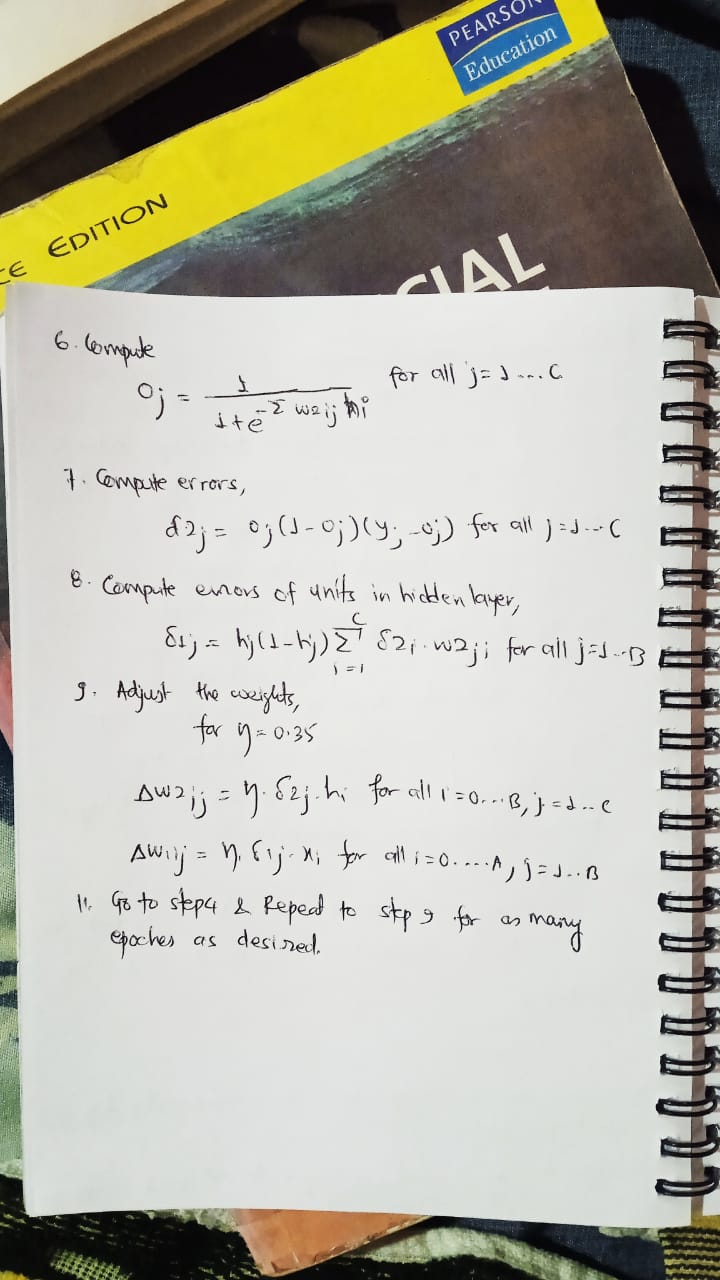 PEARSON
Education
CE EDITION
CIAL
6. Compute
Oj = 1 / 1+e^-Σ w2ij hi for all j=1....C
7. Compute errors,
δ2j = oj(1-oj)(yj-oj) for all j=1...C
8. Compute errors of units in hidden layer,
δ1j = hj(1-hj) Σ^C_i=1 δ2i.w2ji for all j=1...B
9. Adjust the weights,
for η=0.35
Δw2ij = η.δ2j.hi for all i=0...B, j=1..C
Δw1ij = η.δ1j.xi for all i=0....A, j=1..B
11. Go to step4 & Repeat to step 9 for as many
epoches as desired.